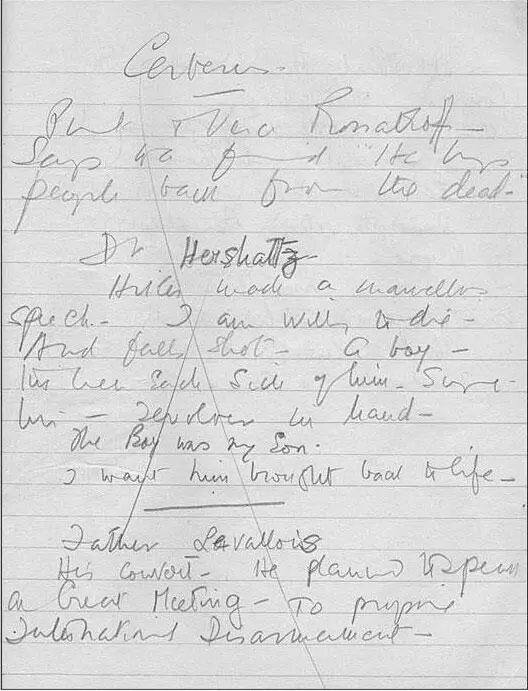 Cerberus.
& Vera Rossakoff —
Says to a friend "He brings
people back from the dead"
Dr Hershaltz
Hitler made a marvellous
speech — I am willing to die —
And falls shot — A boy —
men each side of him — seize
him — revolver in hand —
The Boy was my Son.
I want him brought back to life —
Father Lavallois
His convert — He planned to speak
a Great Meeting — To propose
International Disarmament —